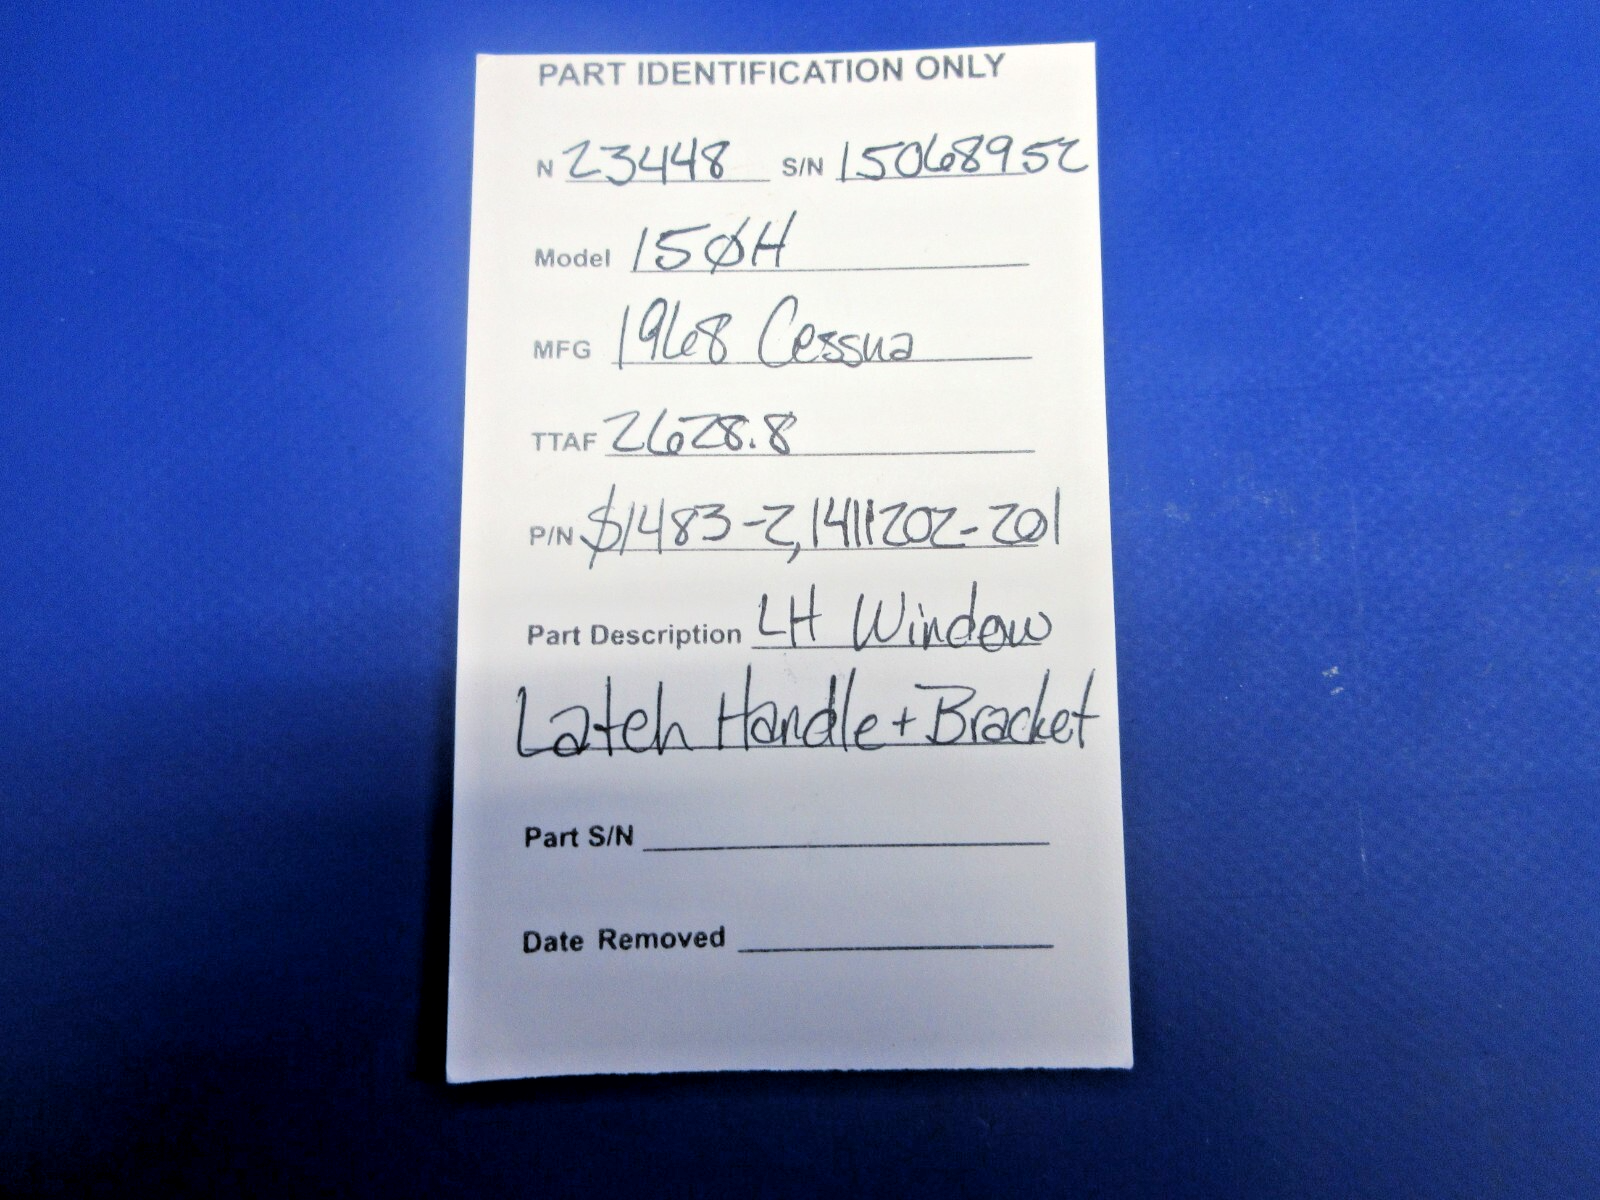 PART IDENTIFICATION ONLY
N 23448 S/N 15068952
Model 150H
MFG 1968 Cessna
TTAF 2628.8
P/N $1483-2, 1411202-201
Part Description LH Window
Latch Handle + Bracket
Part S/N
Date Removed